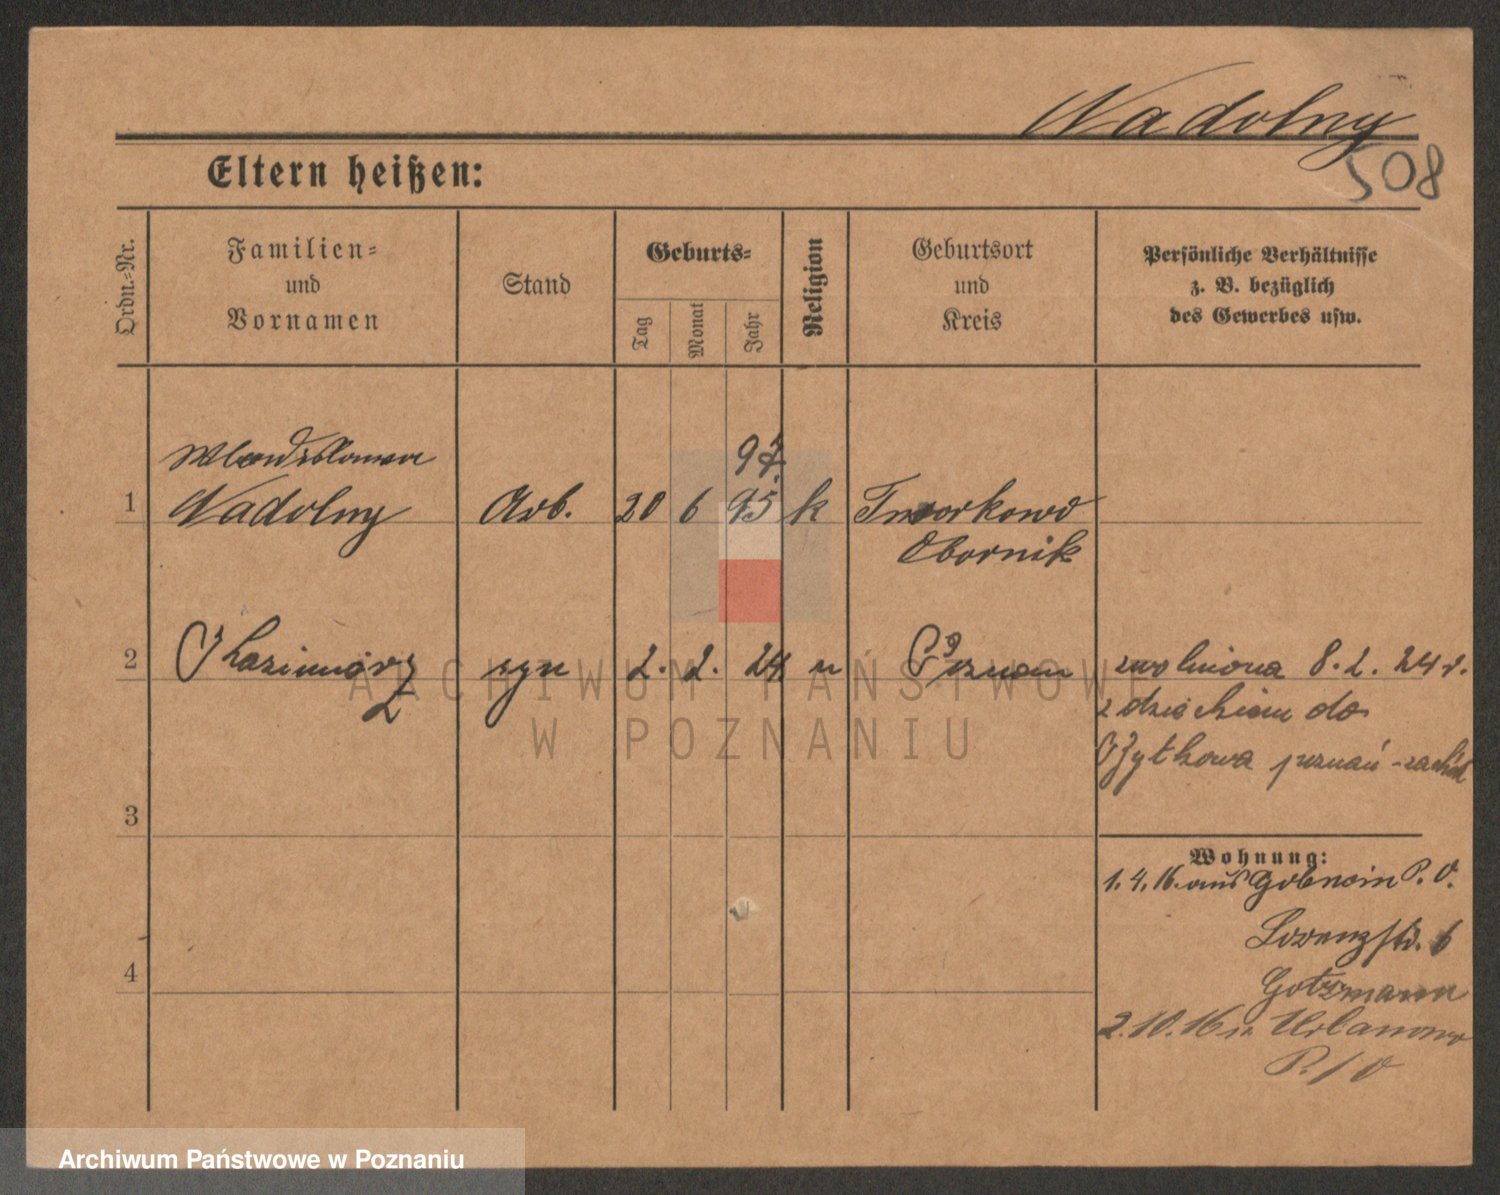 Nadolny
508
Eltern heißen:
Ordn.-Nr.
Familien-
und
Vornamen
Stand
Geburts-
Tag
Monat
Jahr
Religion
Geburtsort
und
Kreis
Persönliche Verhältnisse
z. B. bezüglich
des Gewerbes usw.
97
1 Nadolny Arb. 20 6 95 k Tworkowo
Obornik
2 Kazimierz syn 2. 2. 24 Poznań zwolniona 8. 2. 24 r.
z dzieckiem do
Żytkowa poznań-zachód
3
Wohnung:
1.4.16. aus P. O.
Lorenzstr. 6
4
Gotzmann
2.10.16 n. Urbanowo
P./O
ARCHIWUM PAŃSTWOWE
W POZNANIU
Archiwum Państwowe w Poznaniu